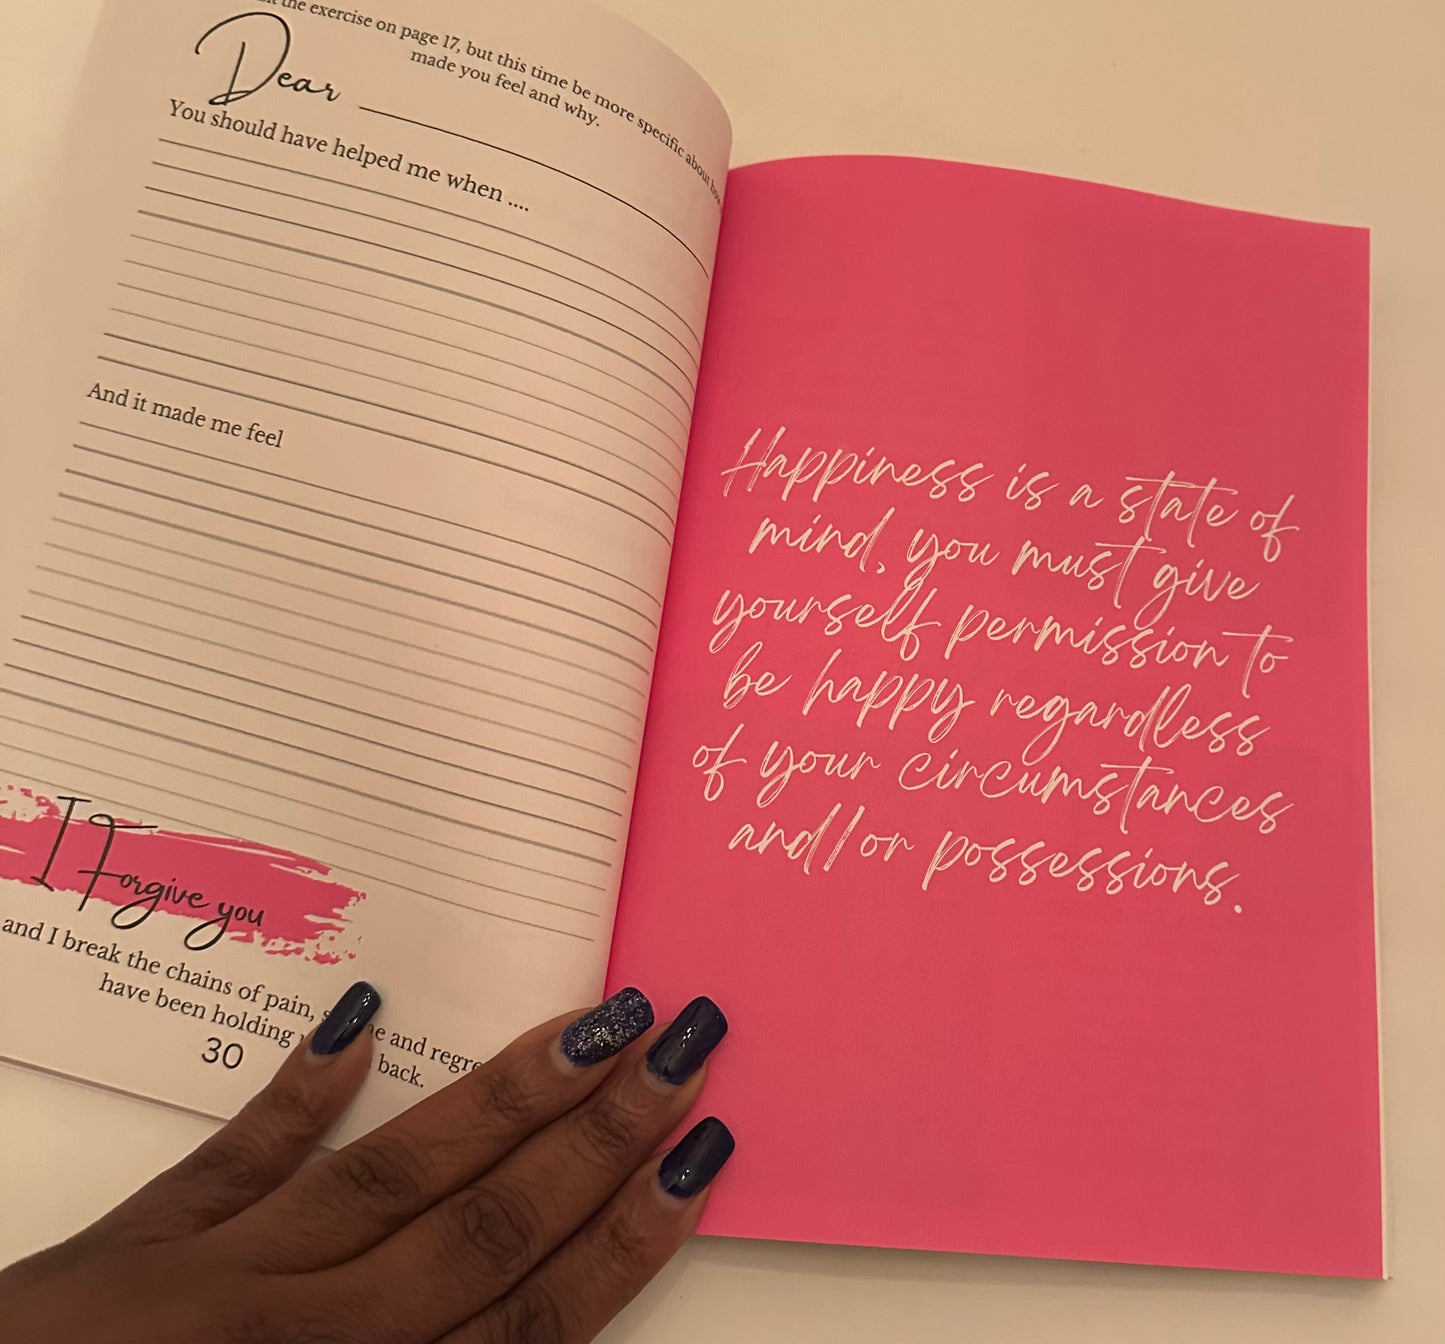 the exercise on page 17, but this time be more specific about how
made you feel and why.
Dear
You should have helped me when ....
And it made me feel
I Forgive you
and I break the chains of pain, and regre
have been holding back.
30
Happiness is a state of
mind, you must give
yourself permission to
be happy regardless
of your circumstances
and/or possessions.